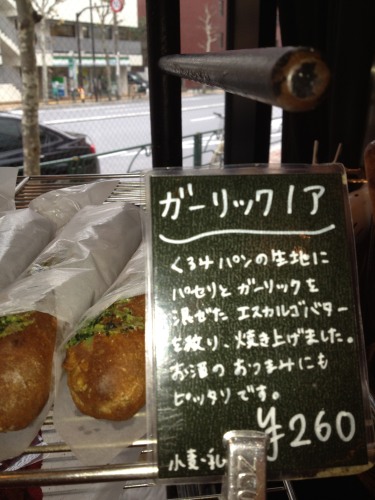 ガーリックノア
くるみパンの生地に
パセリとガーリックを
混ぜた エスカルゴバター
を絞り、焼き上げました。
お酒のおつまみにも
ピッタリです。
¥260
小麦・乳